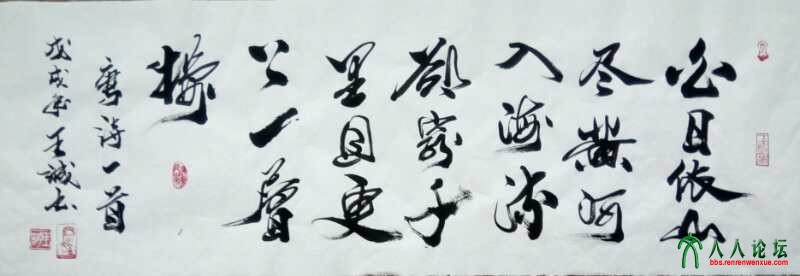 白日依山
尽黄河
入海流
欲穷千
里目更
上一層
楼
唐诗一首
戊戌年王誠书
人人论坛
bbs.renrenwenxue.com